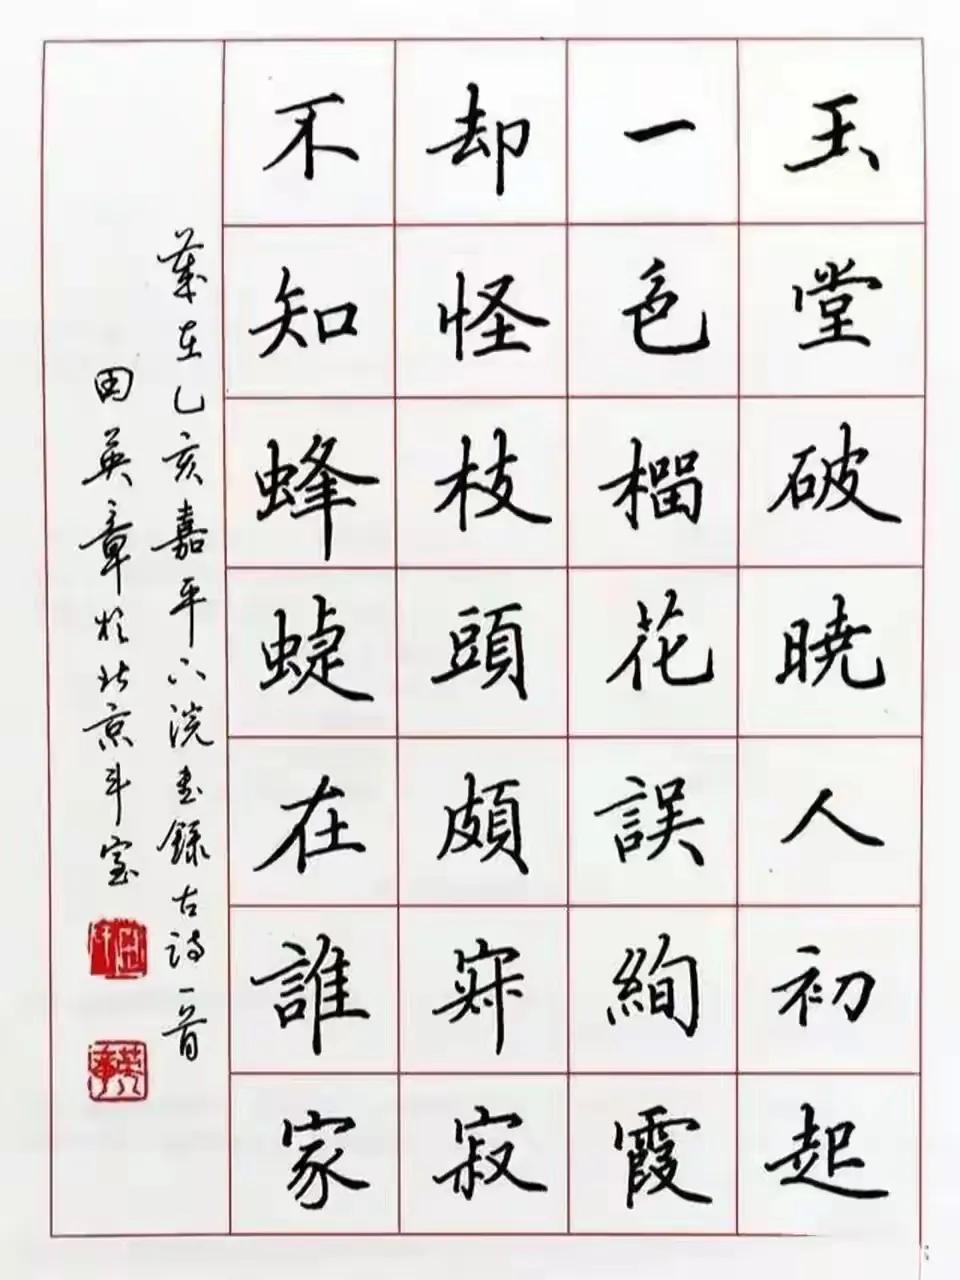 玉堂破暁人初起
一色榴花誤絢霞
却怪枝頭頗寂寂
不知蜂蜨在誰家
歲在乙亥嘉平下浣書錄古詩一首
田英章於北京斗室
英章